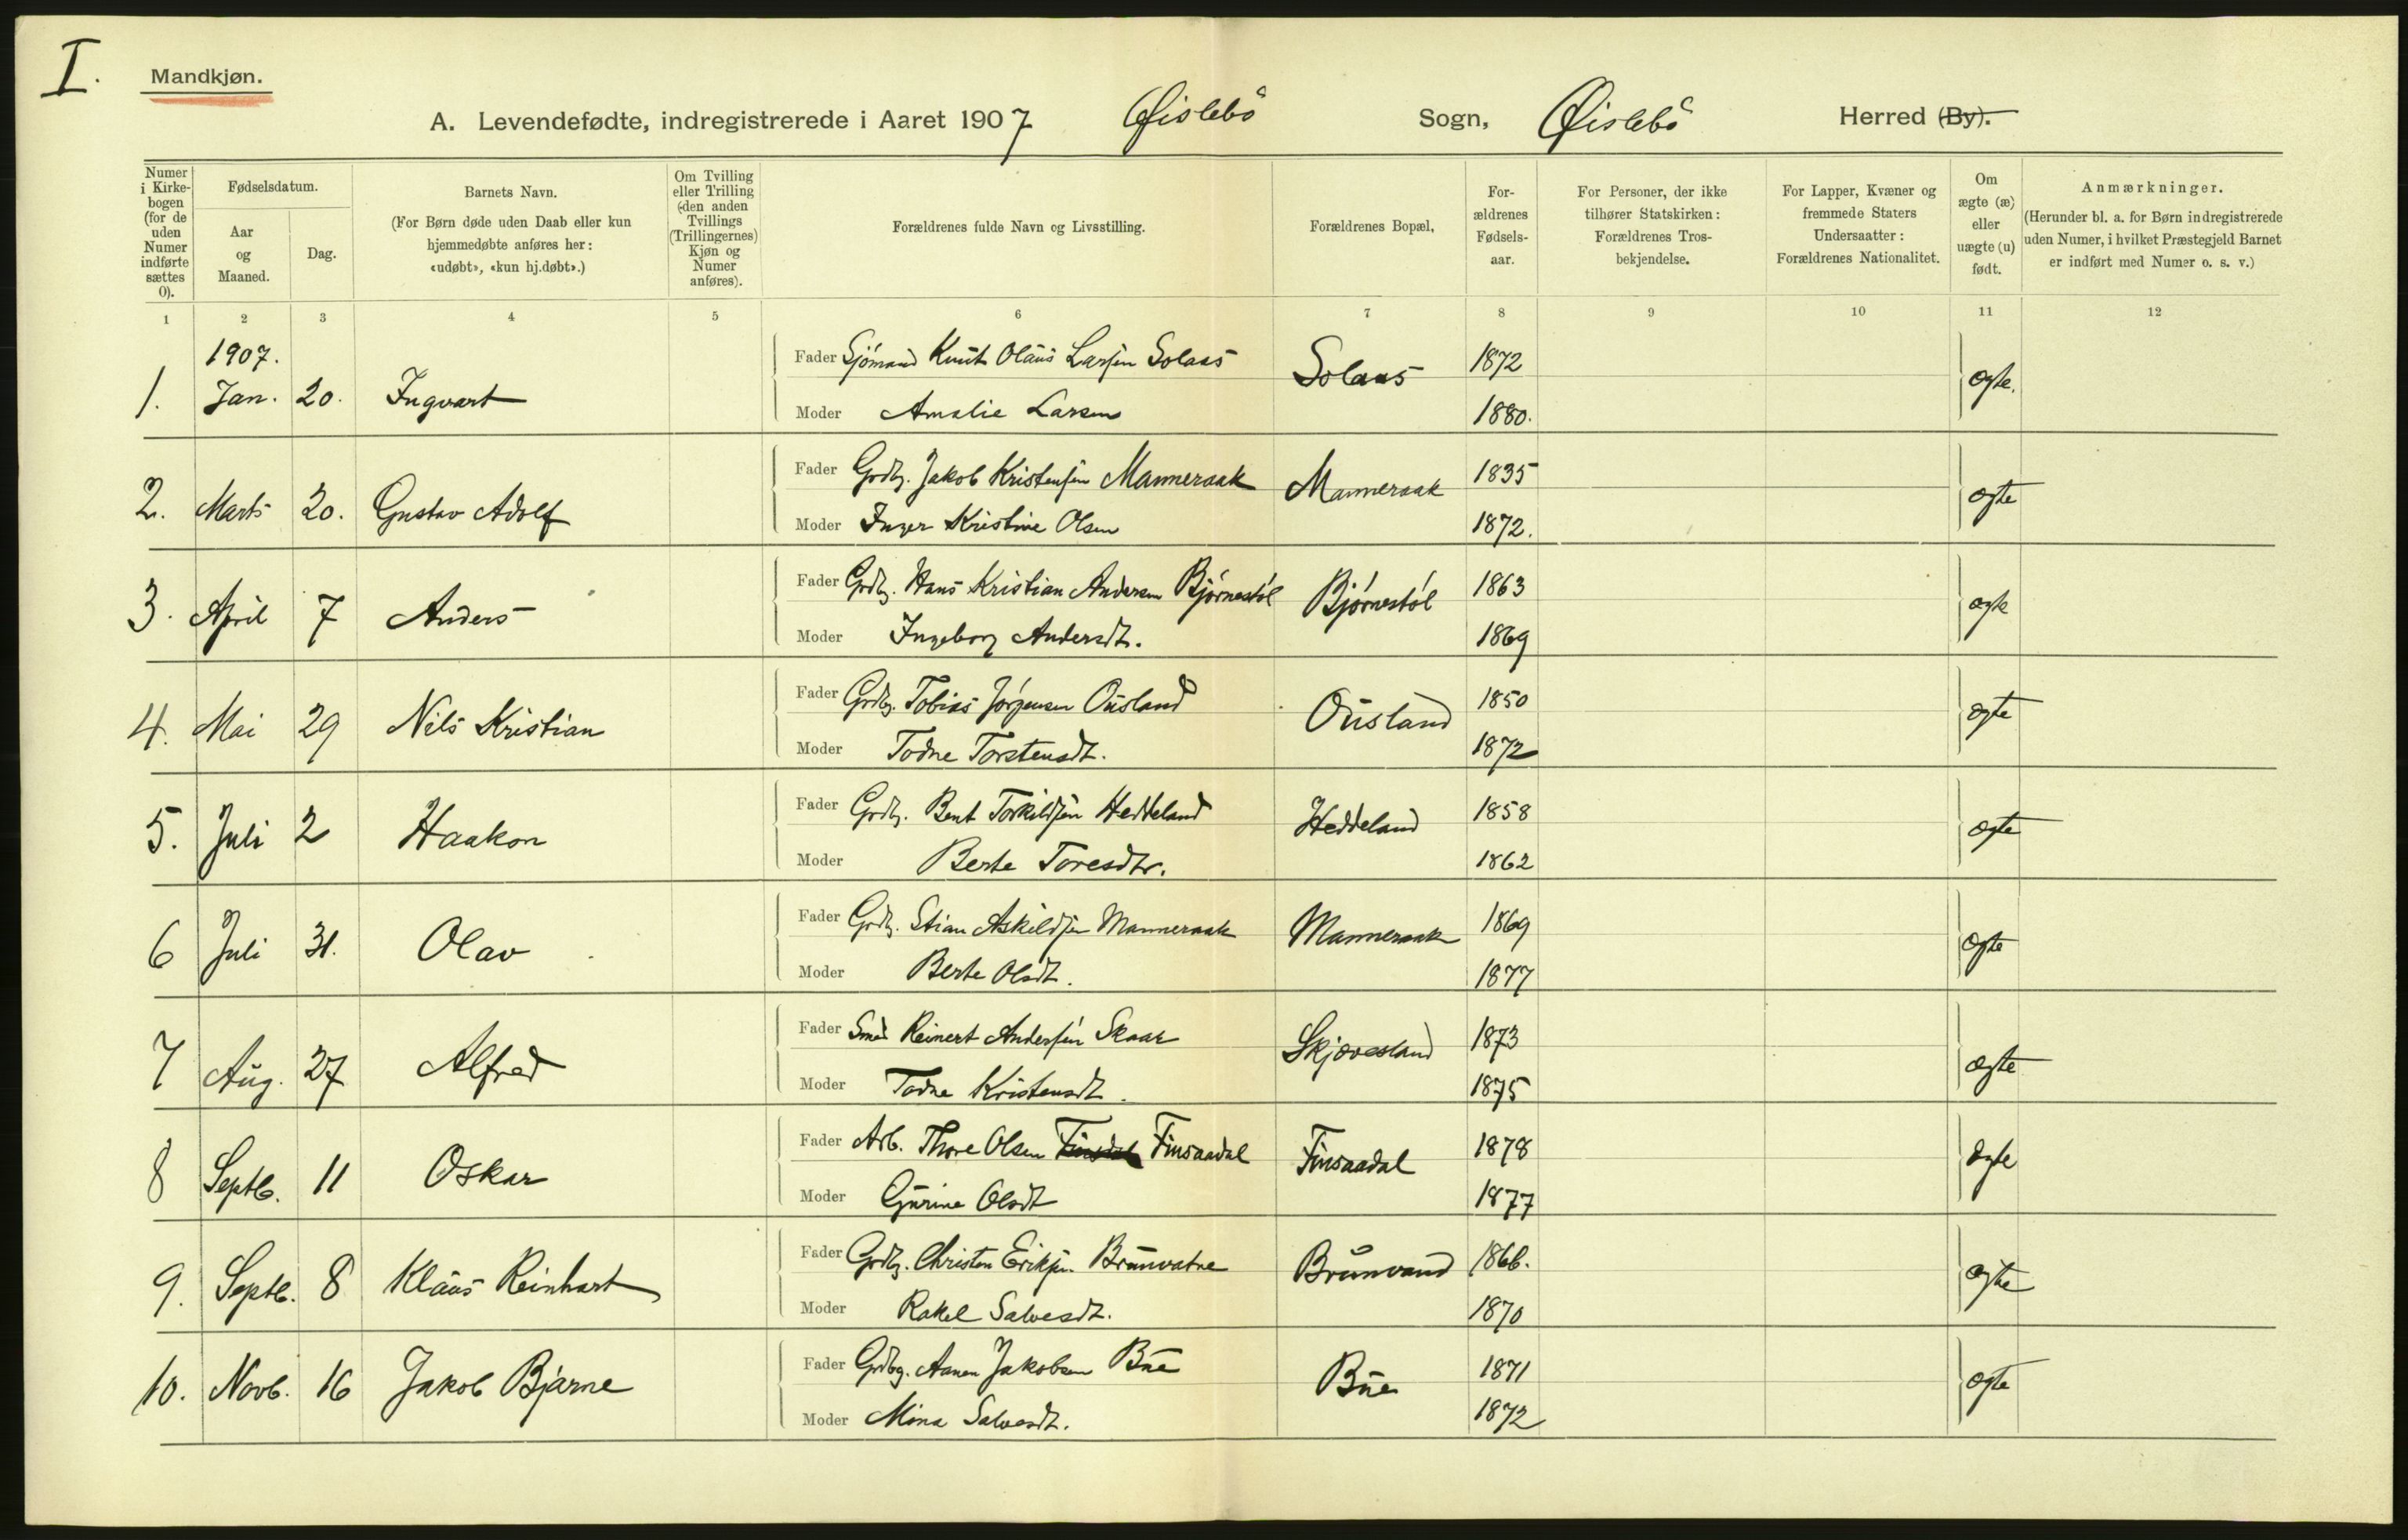 I.
Mandkjøn.
A. Levendefødte, indregistrerede i Aaret 1907 Øislebö Sogn, Øislebö Herred (By).
Numer i Kirke-bogen (for de uden Numer indførte sættes 0).
Fødselsdatum.
Aar og Maaned.
Dag.
Barnets Navn.
(For Børn døde uden Daab eller kun hjemmedøbte anføres her: «udøbt», «kun hj.døbt».)
Om Tvilling eller Trilling (den anden Tvillings (Trillingernes) Kjøn og Numer anføres).
Forældrenes fulde Navn og Livsstilling.
Forældrenes Bopæl,
For-ældrenes Fødsels-aar.
For Personer, der ikke tilhører Statskirken: Forældrenes Tros-bekjendelse.
For Lapper, Kvæner og fremmede Staters Undersaatter: Forældrenes Nationalitet.
Om ægte (æ) eller uægte (u) født.
Anmærkninger.
(Herunder bl. a. for Børn indregistrerede uden Numer, i hvilket Præstegjeld Barnet er indført med Numer o. s. v.)
1 2 3 4 5 6 7 8 9 10 11 12
1907.
1. Jan. 20. Ingvart Fader Sjömand Knut Olaus Larsen Solaas Solaas 1872 ægte.
Moder Amalie Larsen 1880.
2. Marts 20. Gustav Adolf Fader Grdbg. Jakob Kristensen Manneraak Manneraak 1835 ægte
Moder Inger Kristine Olsen 1872.
3. April 7 Anders Fader Grdbg. Hans Kristian Andersen Björnestöl Björnestöl 1863 ægte
Moder Ingeborg Andersdt. 1869
4. Mai 29 Nils Kristian Fader Grdbg. Tobias Jörgensen Ousland Ousland 1850 ægte
Moder Todne Torstensdt. 1872
5. Juli 2 Haakon Fader Grdbg. Bent Torkildsen Heddeland Heddeland 1858 ægte
Moder Berte Toresdtr. 1862
6 Juli 31. Olav Fader Grdbg. Stian Askildsen Manneraak Manneraak 1869 ægte
Moder Berte Olsdt. 1877
7 Aug. 27 Alfred Fader Smed Reinert Andersen Skaar Skjævesland 1873 ægte
Moder Todne Kristensdt. 1875
8 Septb. 11 Oskar Fader Arb. Thore Olsen Finsaadal Finsaadal 1878 ægte
Moder Gurine Olsdt 1877
9. Septb. 8 Klaus Reinhart Fader Grdbg. Christen Eriksen Brunvatne Brunvand 1866. ægte
Moder Rakel Salvesdt. 1870
10. Novb. 16 Jakob Bjarne Fader Grdbg. Aanen Jakobsen Bue Bue 1871 ægte
Moder Mina Salvesdt. 1872